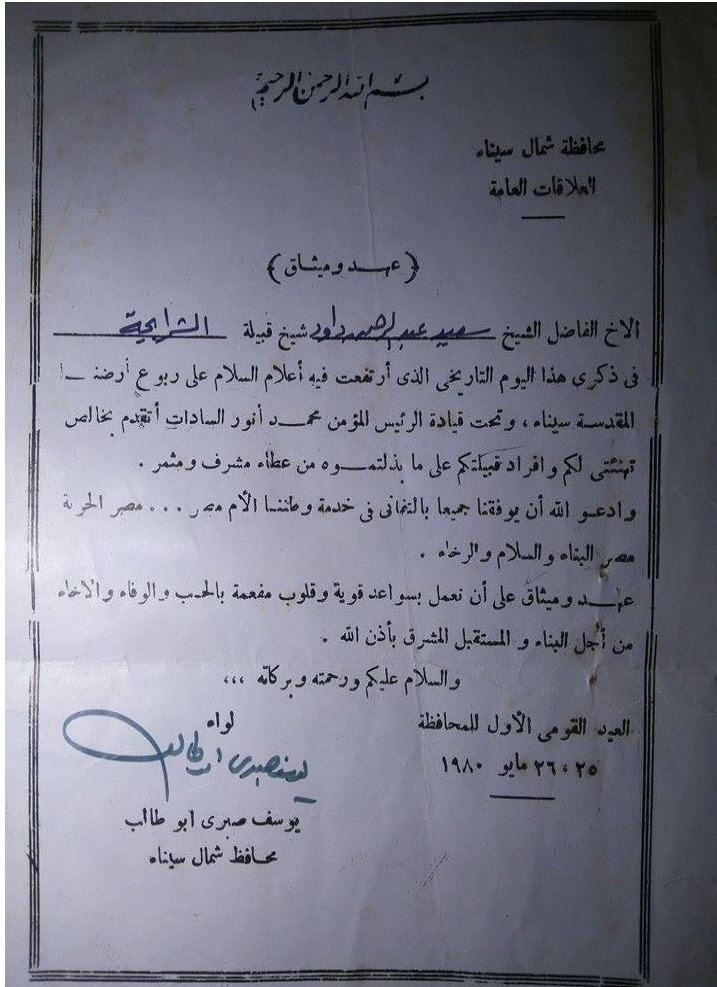 بسم الله الرحمن الرحيم
محافظة شمال سيناء
العلاقات العامة
(عهـد وميثـاق)
الاخ الفاضل الشيخ سعيد عبدالرحمن داود شيخ قبيلة الشرايحة
فى ذكرى هذا اليوم التاريخى الذى أرتفعت فيه أعلام السلام على ربوع أرضنـا
المقدسـة سيناء ، وتحت قيادة الرئيس المؤمن محمـد أنور السادات أتقدم بخالص
تهنئتى لكم وافراد قبيلتكم على ما بذلتمـوه من عطاء مشرف ومثمر .
وادعـو الله أن يوفقنا جميعا بالتفانى فى خدمة وطننـا الأم مصر ... مصر الحرية
مصر البقاء والسلام والرخاء .
عهـد وميثاق على أن نعمل بسواعد قوية وقلوب مفعمة بالحـب والوفاء والاخاء
من أجل البناء و المستقبل المشرق بأذن الله .
والسلام عليكم ورحمته وبركاته ،،،
العيد القومى الأول للمحافظة
٢٥ ، ٢٦ مايو ١٩٨٠
لواء
يوسف صبرى ابو طالب
يوسف صبرى ابو طالب
محافظ شمال سيناء